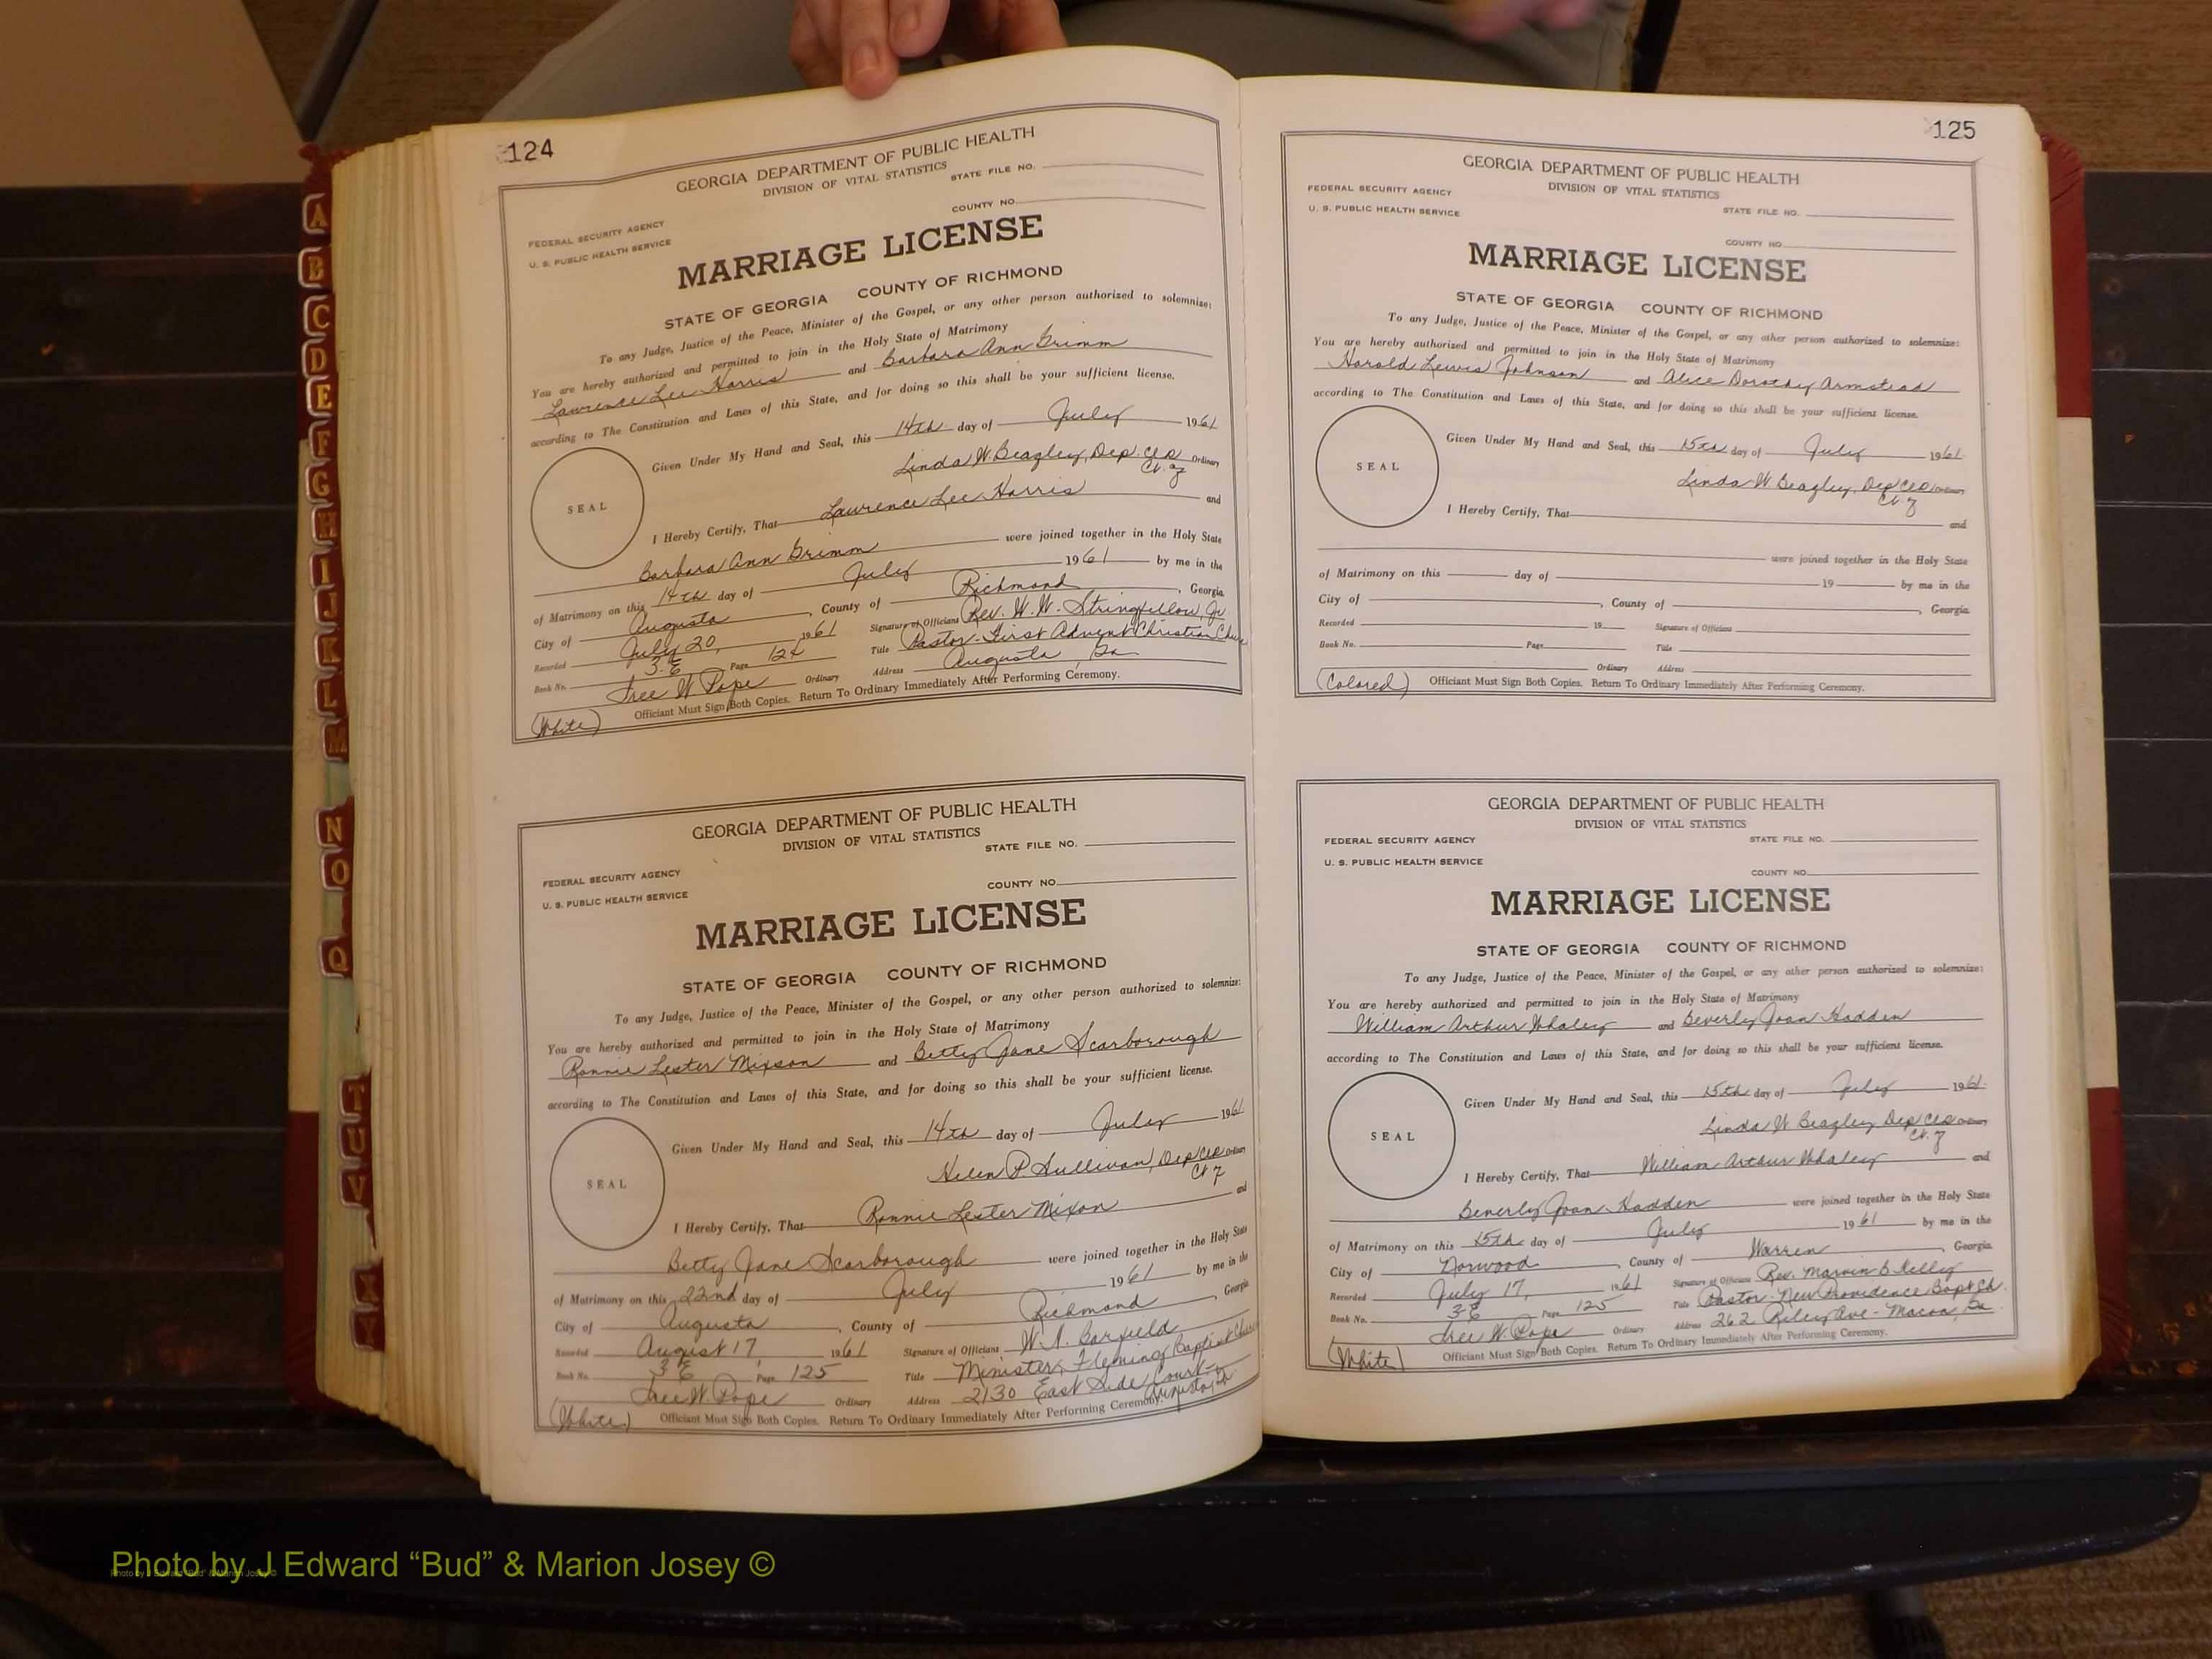 124
GEORGIA DEPARTMENT OF PUBLIC HEALTH
DIVISION OF VITAL STATISTICS
STATE FILE NO.
COUNTY NO.
FEDERAL SECURITY AGENCY
U. S. PUBLIC HEALTH SERVICE
MARRIAGE LICENSE
STATE OF GEORGIA COUNTY OF RICHMOND
To any Judge, Justice of the Peace, Minister of the Gospel, or any other person authorized to solemnize:
You are hereby authorized and permitted to join in the Holy State of Matrimony
Lawrence Lee Harris and Barbara Ann Grimm
according to The Constitution and Laws of this State, and for doing so this shall be your sufficient license.
Given Under My Hand and Seal, this 14th day of July 1961
Linda W. Beazley, Dep. Clk Ordinary
SEAL
I Hereby Certify, That Lawrence Lee Harris and
Barbara Ann Grimm were joined together in the Holy State
of Matrimony on this 14th day of July 1961 by me in the
City of Augusta, County of Richmond, Georgia
Recorded July 20, 1961 Signature of Officiant Rev. W. W. Stringfellow, Jr.
Book No. 3-E Page 124 Title Pastor - First Advent Christian Church
Tree W. Pope Ordinary Address Augusta, Ga
(White) Officiant Must Sign Both Copies. Return To Ordinary Immediately After Performing Ceremony.
GEORGIA DEPARTMENT OF PUBLIC HEALTH
DIVISION OF VITAL STATISTICS
STATE FILE NO.
FEDERAL SECURITY AGENCY
COUNTY NO.
U. S. PUBLIC HEALTH SERVICE
MARRIAGE LICENSE
STATE OF GEORGIA COUNTY OF RICHMOND
To any Judge, Justice of the Peace, Minister of the Gospel, or any other person authorized to solemnize:
You are hereby authorized and permitted to join in the Holy State of Matrimony
Ronnie Lester Mixson and Betty Jane Scarborough
according to The Constitution and Laws of this State, and for doing so this shall be your sufficient license.
Given Under My Hand and Seal, this 14th day of July 1961
Helen P. Sullivan, Dep Clk Ordinary
SEAL
I Hereby Certify, That Ronnie Lester Mixon and
Betty Jane Scarborough were joined together in the Holy State
of Matrimony on this 22nd day of July 1961 by me in the
City of Augusta, County of Richmond Georgia
Recorded August 17, 1961 Signature of Officiant W. A. Barfield
Book No. 3 E Page 125 Title Minister, Fleming Baptist Church
Tree W. Pope Ordinary Address 2130 East Side Court - Augusta, Ga.
(White) Officiant Must Sign Both Copies. Return To Ordinary Immediately After Performing Ceremony.
125
GEORGIA DEPARTMENT OF PUBLIC HEALTH
DIVISION OF VITAL STATISTICS
FEDERAL SECURITY AGENCY
U. S. PUBLIC HEALTH SERVICE
STATE FILE NO.
COUNTY NO.
MARRIAGE LICENSE
STATE OF GEORGIA COUNTY OF RICHMOND
To any Judge, Justice of the Peace, Minister of the Gospel, or any other person authorized to solemnize:
You are hereby authorized and permitted to join in the Holy State of Matrimony
Harold Lewis Johnson and Alice Dorothy Armstead
according to The Constitution and Laws of this State, and for doing so this shall be your sufficient license.
Given Under My Hand and Seal, this 15th day of July 1961
Linda W Beazley, Dep Clk Ordinary
SEAL
I Hereby Certify, That and
were joined together in the Holy State
of Matrimony on this day of 19 by me in the
City of , County of , Georgia
Recorded 19 Signature of Officiant
Book No. Page Title
Ordinary Address
(Colored) Officiant Must Sign Both Copies. Return To Ordinary Immediately After Performing Ceremony.
GEORGIA DEPARTMENT OF PUBLIC HEALTH
DIVISION OF VITAL STATISTICS
FEDERAL SECURITY AGENCY
STATE FILE NO.
U. S. PUBLIC HEALTH SERVICE
COUNTY NO.
MARRIAGE LICENSE
STATE OF GEORGIA COUNTY OF RICHMOND
To any Judge, Justice of the Peace, Minister of the Gospel, or any other person authorized to solemnize:
You are hereby authorized and permitted to join in the Holy State of Matrimony
William Arthur Whaley and Beverly Joan Hadden
according to The Constitution and Laws of this State, and for doing so this shall be your sufficient license.
Given Under My Hand and Seal, this 15th day of July 1961
Linda W Beazley Dep Clk Ordinary
SEAL
I Hereby Certify, That William Arthur Whaley and
Beverly Joan Hadden were joined together in the Holy State
of Matrimony on this 15th day of July 1961 by me in the
City of Norwood, County of Warren, Georgia
Recorded July 17, 1961 Signature of Officiant Rev. Marvin B Kelly
Book No. 3-E Page 125 Title Pastor - New Providence Bapt Ch.
Tree W. Pope Ordinary Address 262 Riley Ave - Macon, Ga.
(White) Officiant Must Sign Both Copies. Return To Ordinary Immediately After Performing Ceremony.
A
B
C
D
E
F
G
H
I
J
K
L
M
N
O
Q
T
U
V
Photo by J Edward “Bud” & Marion Josey ©
Photo by J Edward "Bud" & Marion Josey ©